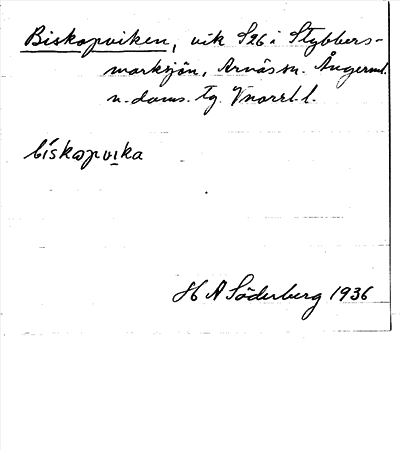 Biskopviken, vik S26 i Stybbers-
marksjön, Arnäs sn. Ångerml.
n. doms. tg. Vnorrl. l.
bískωpvika
H A Söderberg 1936